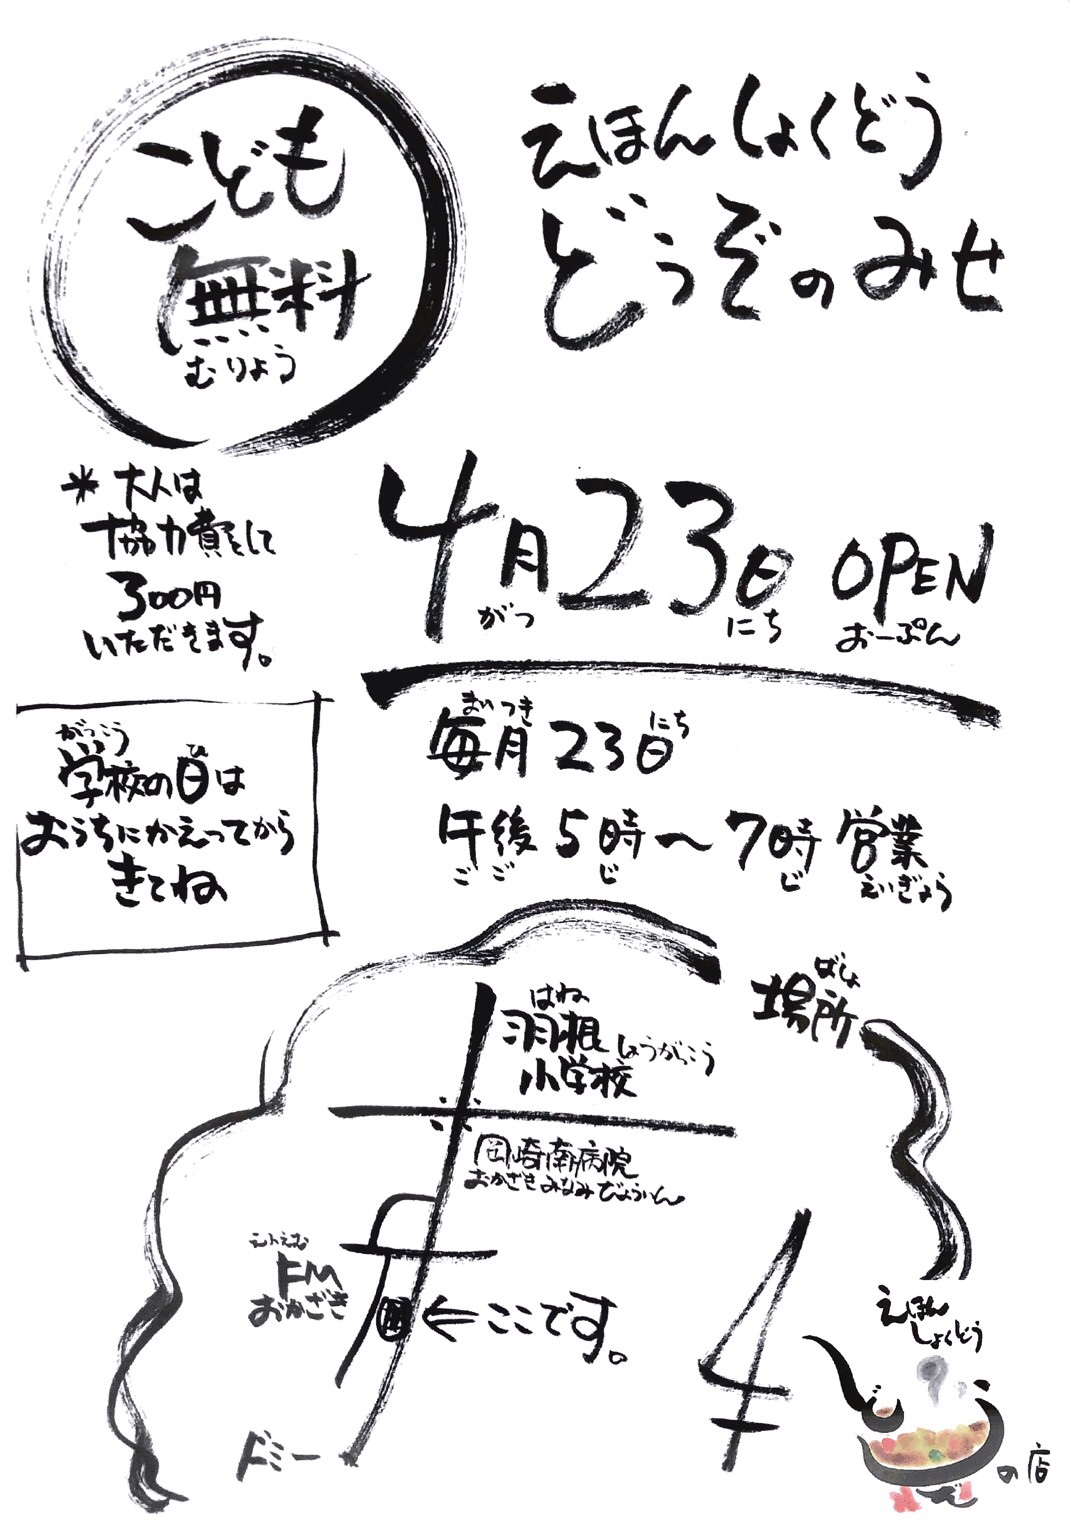 えほんしょくどう
どうぞのみせ
こども
無料
むりょう
*大人は
協力費として
300円
いただきます。
4月23日 OPEN
がつ にち おーぷん
まいつき にち
毎月23日
午後5時～7時営業
ごご じ じ えいぎょう
がっこう ひ
学校の日は
おうちにかえってから
きてね
ばしょ
場所
はね
羽根
小学校 しょうがっこう
岡崎南病院
おかざきみなみびょういん
えふえむ
FM
おかざき
⇐ここです。
ドミー
えほん
しょくどう
どうぞ
の店